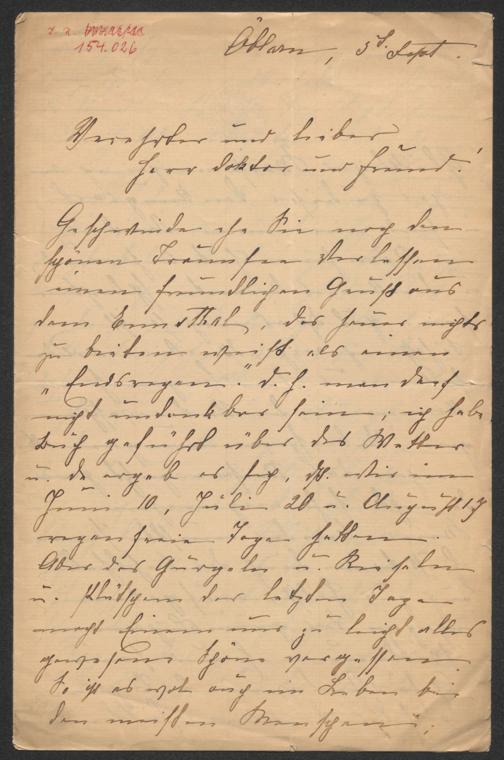 154.026
Öblarn, 5t. Sept.
Verehrter und lieber
Herr Doktor und Freund!
Geschwinde ehe Sie noch den
schönen Traunsee verlassen
einen freundlichen Gruß aus
dem Ennsthal, das heuer nichts
zu bieten weiß als einen
"Endsregen". D. h. man darf
nicht undankbar sein; ich habe
Buch geführt über das Wetter
u. da ergab es sich, dß. wir im
Juni 10, Juli 20 u. August 17
regenfreie Tage hatten.
Aber das Gurgeln u. Rieseln
u. Plätschern der letzten Tage
macht Einem nur zu leicht alles
gewesene Schöne vergessen.
So ist es wol auch im Leben bei
den meisten Menschen;